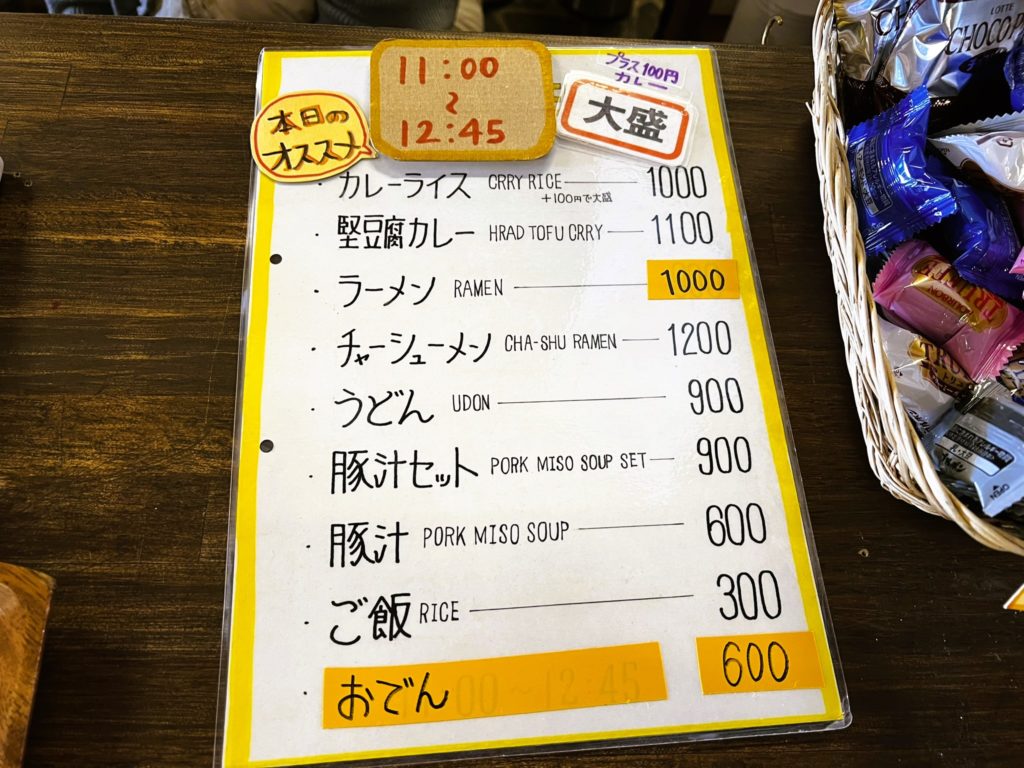 11:00
~
12:45
本日の
オススメ
プラス100円
カレー
大盛
・カレーライス CRRY RICE 1000
+100円で大盛
・堅豆腐カレー HRAD TOFU CRRY 1100
・ラーメン RAMEN 1000
・チャーシューメン CHA-SHU RAMEN 1200
・うどん UDON 900
・豚汁セット PORK MISO SOUP SET 900
・豚汁 PORK MISO SOUP 600
・ご飯 RICE 300
・おでん 600
00~12:45
LOTTE
OPEN